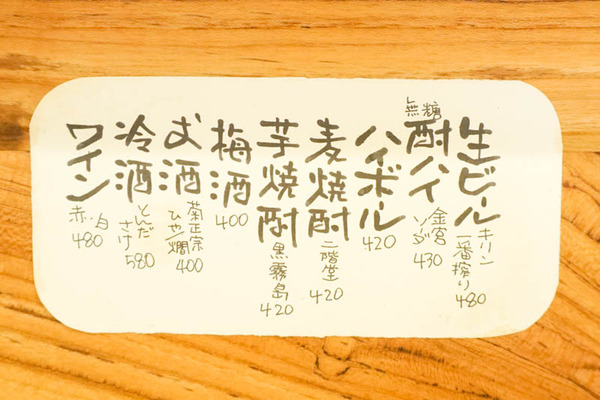 生ビール
キリン
一番搾り
480
無糖
酎ハイ
金宮
ソーダ
430
ハイボール
420
麦焼酎
二階堂
420
芋焼酎
黒霧島
420
梅酒
400
お酒
菊正宗
ひや/燗
400
冷酒
とんだ
さけ
580
ワイン
赤・白
480